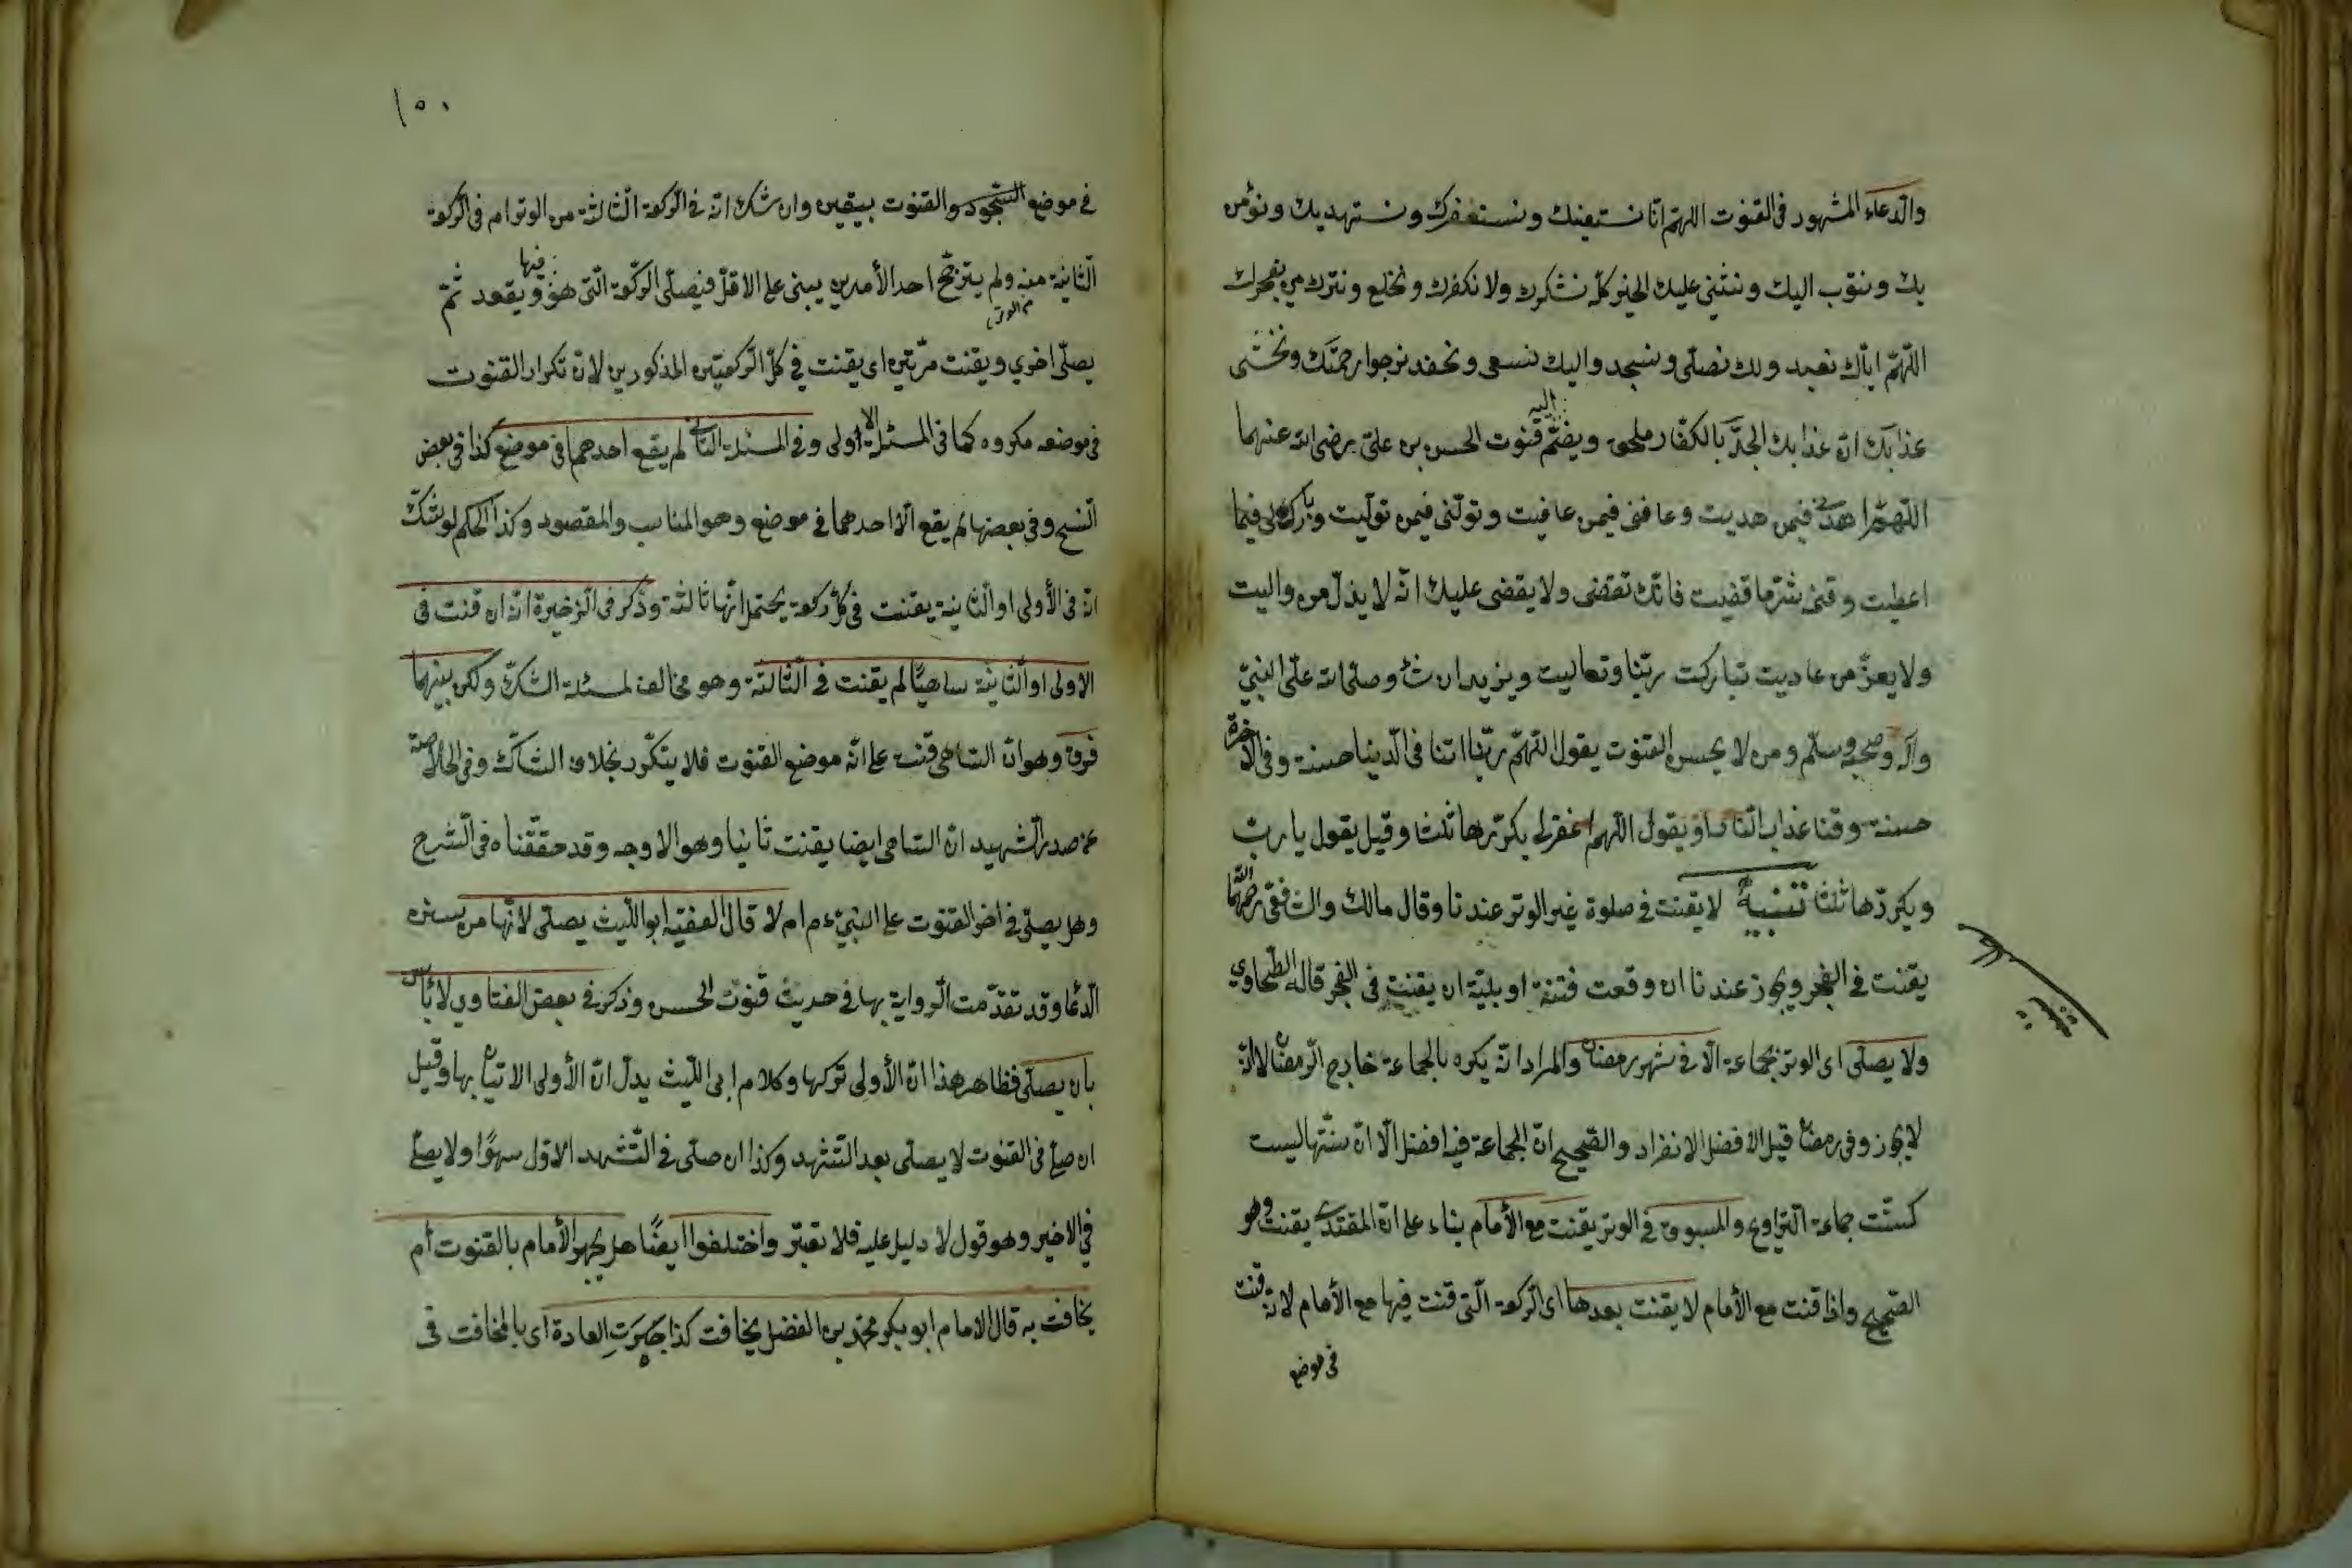 والدعاء المشهور فى القنوت اللهم انا نستعينك ونستغفرك ونستهديك ونؤمن
بك ونتوب اليك ونثنى عليك الخير كله نشكرك ولا نكفرك ونخلع ونترك من يفجرك
اللهم اياك نعبد ولك نصلى ونسجد واليك نسعى ونحفد نرجوا رحمتك ونخشى
عذابك ان عذابك الجد بالكفار ملحق ويضم اليه قنوت الحسن بن على رضى الله عنهما
اللهم اهدنى فيمن هديت وعافنى فيمن عافيت وتولنى فيمن توليت وبارك لى فيما
اعطيت وقنى شر ما قضيت فانك تقضى ولا يقضى عليك انه لا يذل من واليت
ولا يعز من عاديت تباركت ربنا وتعاليت ويزيد ان شاء وصلى الله على النبى
وآله وصحبه وسلم ومن لا يحسن القنوت يقول اللهم ربنا اتنا فى الدنيا حسنة وفى الاخرة
حسنة وقنا عذاب النار او يقول اللهم اغفر لى يكررها ثلثا وقيل يقول يا رب
ويكررها ثلثا تنبيه لا يقنت فى صلوة غير الوتر عندنا وقال مالك والشافعى رحمهما الله
يقنت فى الفجر ويجوز عندنا ان وقعت فتنة او بلية ان يقنت فى الفجر قاله الطحاوى
ولا يصلى اى الوتر بجماعة الا فى شهر رمضان والمراد انه يكره بالجماعة خارج الرمضان لا انه
لا يجوز وفى رمضان قيل الافضل الانفراد والصحيح ان الجماعة فيه افضل الا ان سنتها ليست
كسنت جماعة التراويح والمسبوق فى الوتر يقنت مع الأمام بناء على ان المقتدى يقنت وهو
الصحيح واذا قنت مع الأمام لا يقنت بعدها اى الركعة التى قنت فيها مع الأمام لانه قنت
فى موضع
١٥٠
فى موضع السجود والقنوت بيقين وان شك انه فى الركعة الثالثة من الوتر ام فى الركعة
الثانية منه ولم يترجح احد الأمرين يبنى على الاقل فيصلى الركعة التى هو فيها ويقعد ثم
من الوتر
يصلى اخرى ويقنت مرتين اى يقنت فى كل الركعتين المذكورين لان تكرار القنوت
فى موضعه مكروه كما فى المسئلة الاولى وفى المسئلة الثانى لم يقع احدهما فى موضع كذا فى بعض
النسخ وفى بعضها لم يقع الا احدهما فى موضع وهو المناسب والمقصود وكذا الحكم لو شك
انه فى الأولى او الثانية يقنت فى كل ركعة يحتمل انها ثالثة وذكر فى الذخيرة انه ان قنت فى
الاولى او الثانية ساهيا لم يقنت فى الثالثة وهو مخالف لمسئلة الشك ولكن بينهما
فرق وهو ان الساهى قنت على انه موضع القنوت فلا يتكرر بخلاف الشاك وفى الخلاصة
عن صدر الشهيد ان الساهى ايضا يقنت ثانيا وهو الاوجه وقد حققناه فى الشرح
وهل يصلى فى اخر القنوت على النبى عم ام لا قال الفقيه ابو الليث يصلى لانها من سنن
الدعا وقد تقدمت الرواية بها فى حديث قنوت الحسن وذكر فى بعض الفتاوى لا بأس
بان يصلى فظاهر هذا ان الأولى تركها وكلام ابى الليث يدل ان الأولى الاتيان بها وقيل
ان صلى فى القنوت لا يصلى بعد التشهد وكذا ان صلى فى التشهد الاول سهوا ولا يصلى
فى الاخير وهو قول لا دليل عليه فلا تعتبر واختلفوا ايضا هل يجهر الأمام بالقنوت أم
يخافت به قال الامام ابو بكر محمد بن الفضل يخافت كذا جرت العادة اى بالمخافت فى